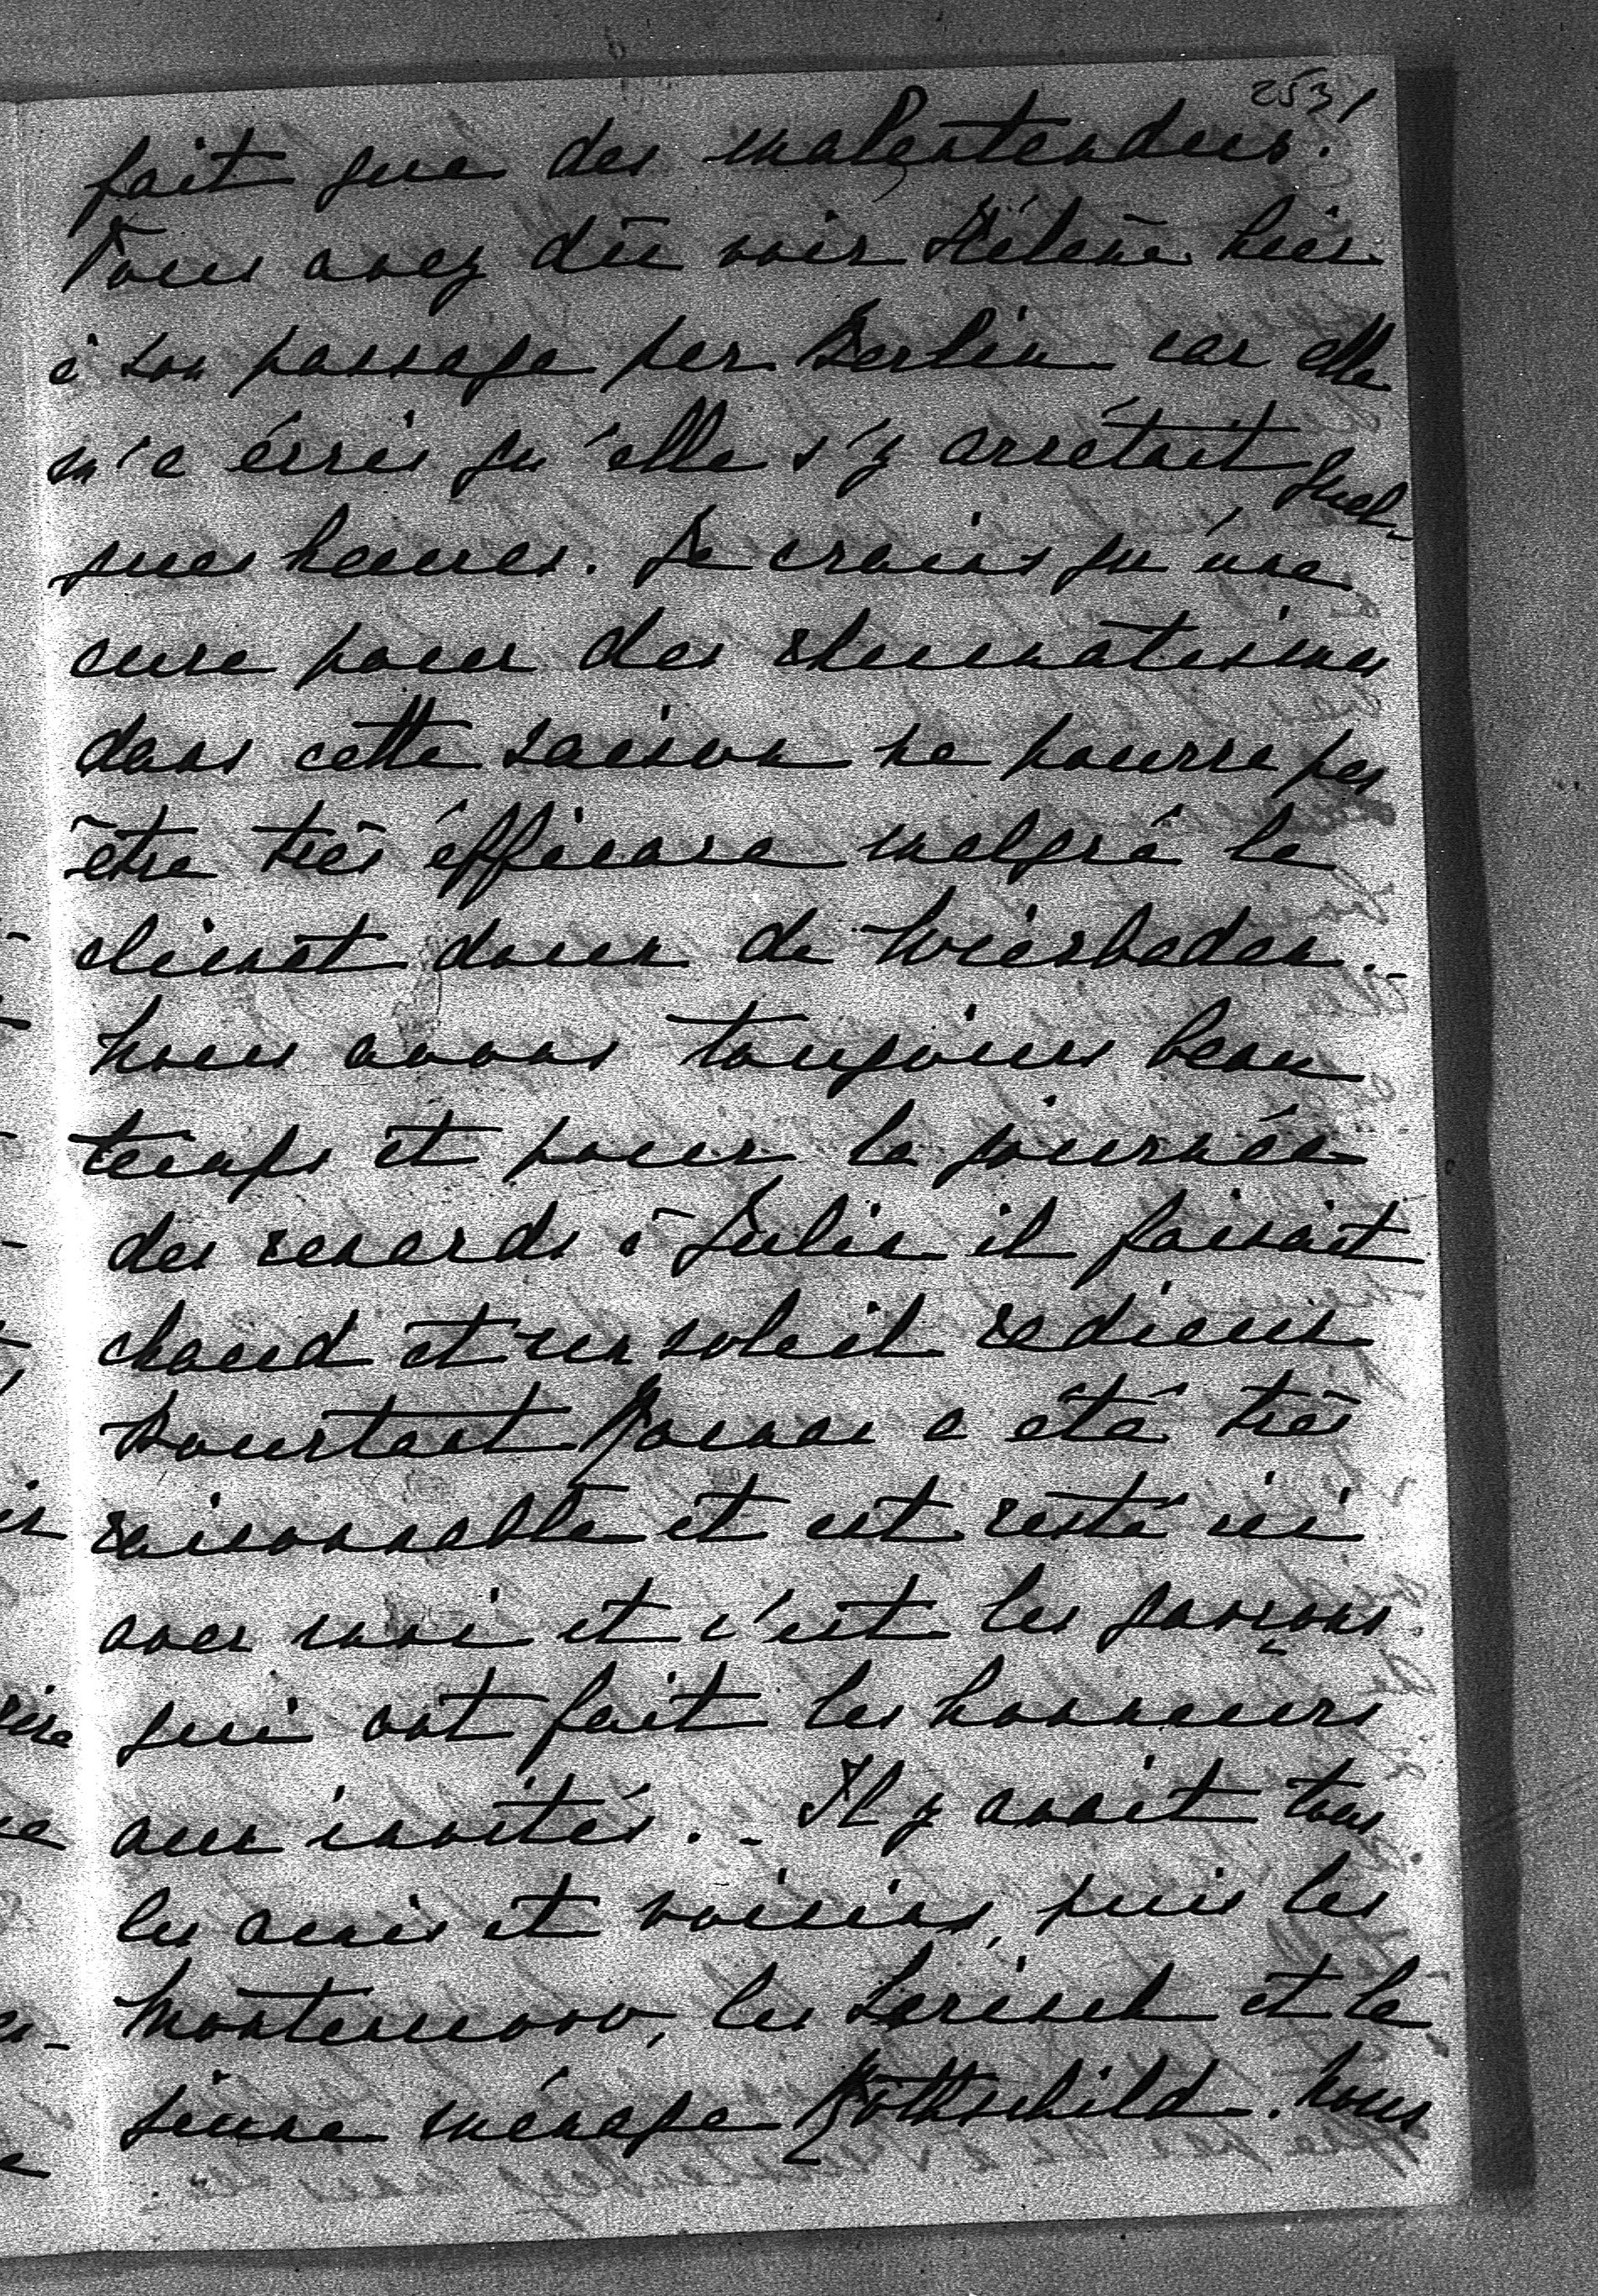 253/
fait que des malentendus.
Vous avez dû voir Hélène hier
à son passage par Berlin car elle
m'a écrit qu'elle s'y arrêtait quel-
ques heures. Je crains qu'une
cure pour des rhumatismes
dans cette saison ne pourra pas
être très éfficace malgré le
climat doux de Wiesbaden.-
Nous avons toujours beau
temps et pour la journée
des renards à Julin il faisait
chaud et un soleil radieux
Pourtant a été très
raisonnable et est resté ici
avec moi et c'est les garçons
qui ont fait les honneurs
aux invités. - Il y avait tous
les amis et voisins, puis les
Montenuovo, les Larisch et le
jeune ménage Rothschild. Nous